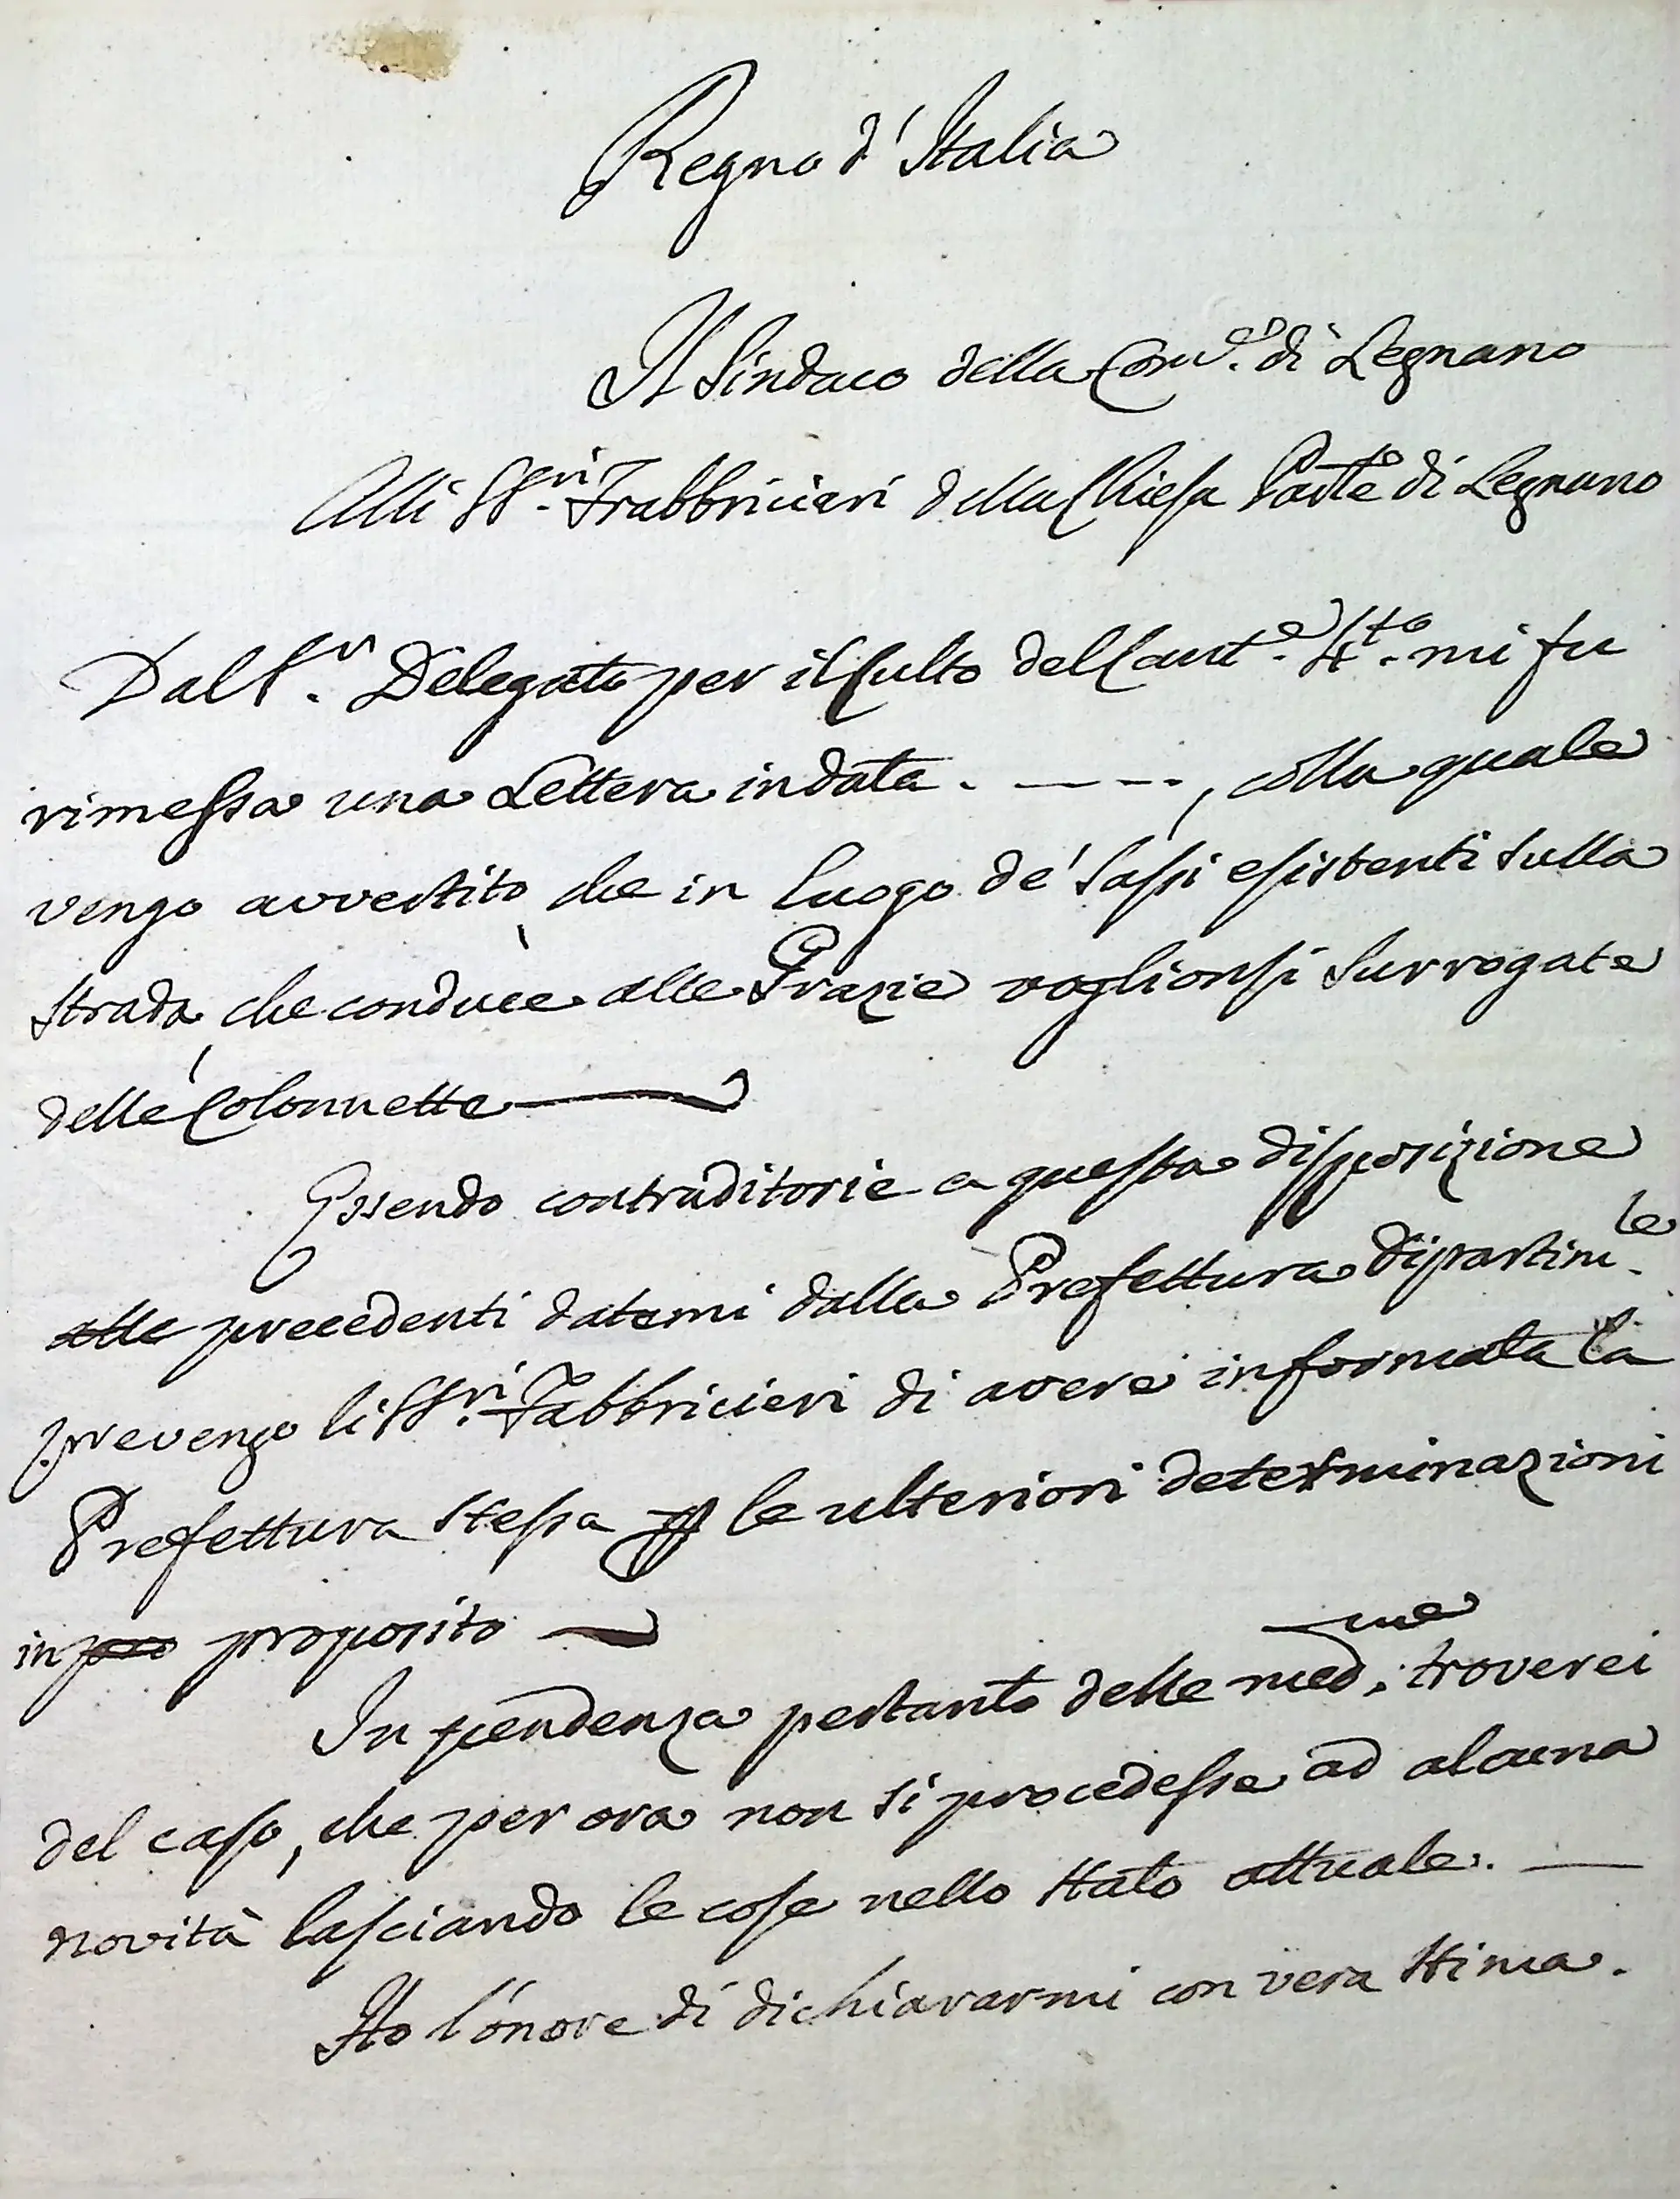 Regno d'Italia
Il Sindaco della Com.e di Legnano
Alli SS.ri Frabbricieri della Chiesa Par.le di Legnano
Dal S.r Delegato per il Culto del Cant.e 4.to mi fu
rimessa una Lettera in data . — - - - , colla quale
vengo avvertito, che in luogo de' Sassi esistenti sulla
strada, che conduce alle Grazie voglionsi surrogate
delle Colonnette —
Essendo contraditorie a questa disposizione
alle precedenti datemi dalla Prefettura dipartim.le
prevengo li SS.ri Fabbricieri di avere informata la
Prefettura stessa p le ulteriori determinazioni
in pro proposito —
In pendenza pertanto delle med.me troverei
del caso, che per ora non si procedesse ad alcuna
novità lasciando le cose nello stato attuale. —
Ho l'onore di dichiararmi con vera stima.